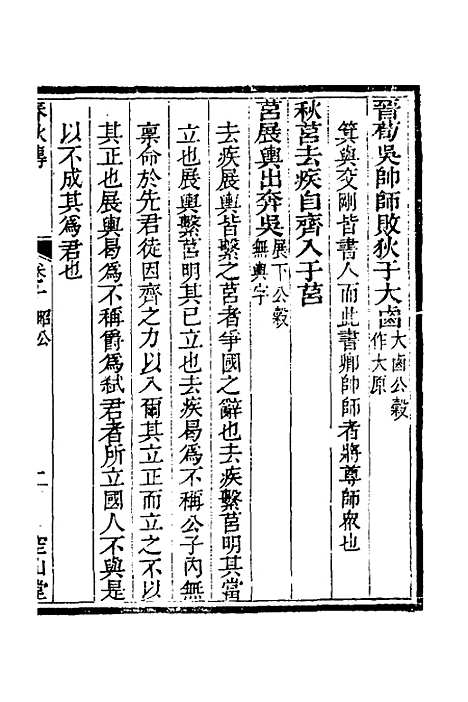 晉荀吳帥師敗狄于大鹵大鹵公穀作大原
箕與交剛皆書人而此書卿帥師者將尊師眾也
秋莒去疾自齊入于莒
莒展輿出奔吳展下公穀無輿字
去疾展輿皆繫之莒者爭國之辭也去疾繫莒明其當
立也展輿繫莒明其已立也去疾曷為不稱公子內無
稟命於先君徒因齊之力以入爾其立正而立之不以
其正也展輿曷為不稱爵為弒君者所立國人不與是
以不成其為君也
春秋傳 卷十 昭公 二 空山堂